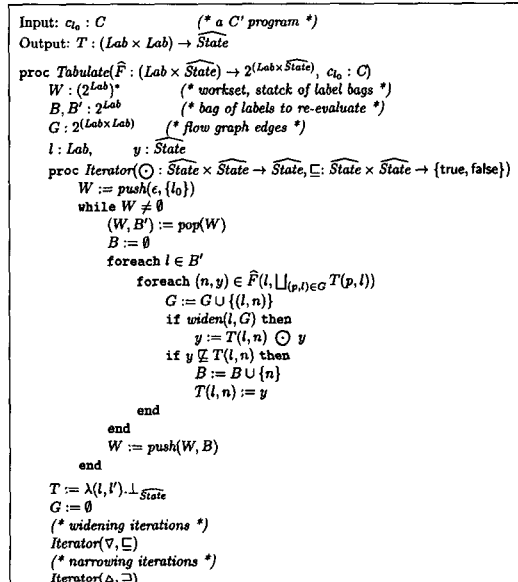 Input: c_{l_0} : C (* a C' program *)
Output: T : (Lab × Lab) → \widehat{State}
proc Tabulate(\widehat{F} : (Lab × \widehat{State}) → 2^{(Lab×\widehat{State})}, c_{l_0} : C)
W : (2^{Lab})* (* workset, statck of label bags *)
B, B' : 2^{Lab} (* bag of labels to re-evaluate *)
G : 2^{(Lab×Lab)} (* flow graph edges *)
l : Lab, y : \widehat{State}
proc Iterator(⨀ : \widehat{State} × \widehat{State} → \widehat{State}, ⊑: \widehat{State} × \widehat{State} → {true, false})
W := push(ε, {l_0})
while W ≠ ∅
(W, B') := pop(W)
B := ∅
foreach l ∈ B'
foreach (n, y) ∈ \widehat{F}(l, ⨆_{(p,l)∈G} T(p, l))
G := G ∪ {(l, n)}
if widen(l, G) then
y := T(l, n) ⨀ y
if y ⋢ T(l, n) then
B := B ∪ {n}
T(l, n) := y
end
end
W := push(W, B)
end
T := λ(l, l').⊥_{\widehat{State}}
G := ∅
(* widening iterations *)
Iterator(∇, ⊑)
(* narrowing iterations *)
Iterator(△, ⊒)